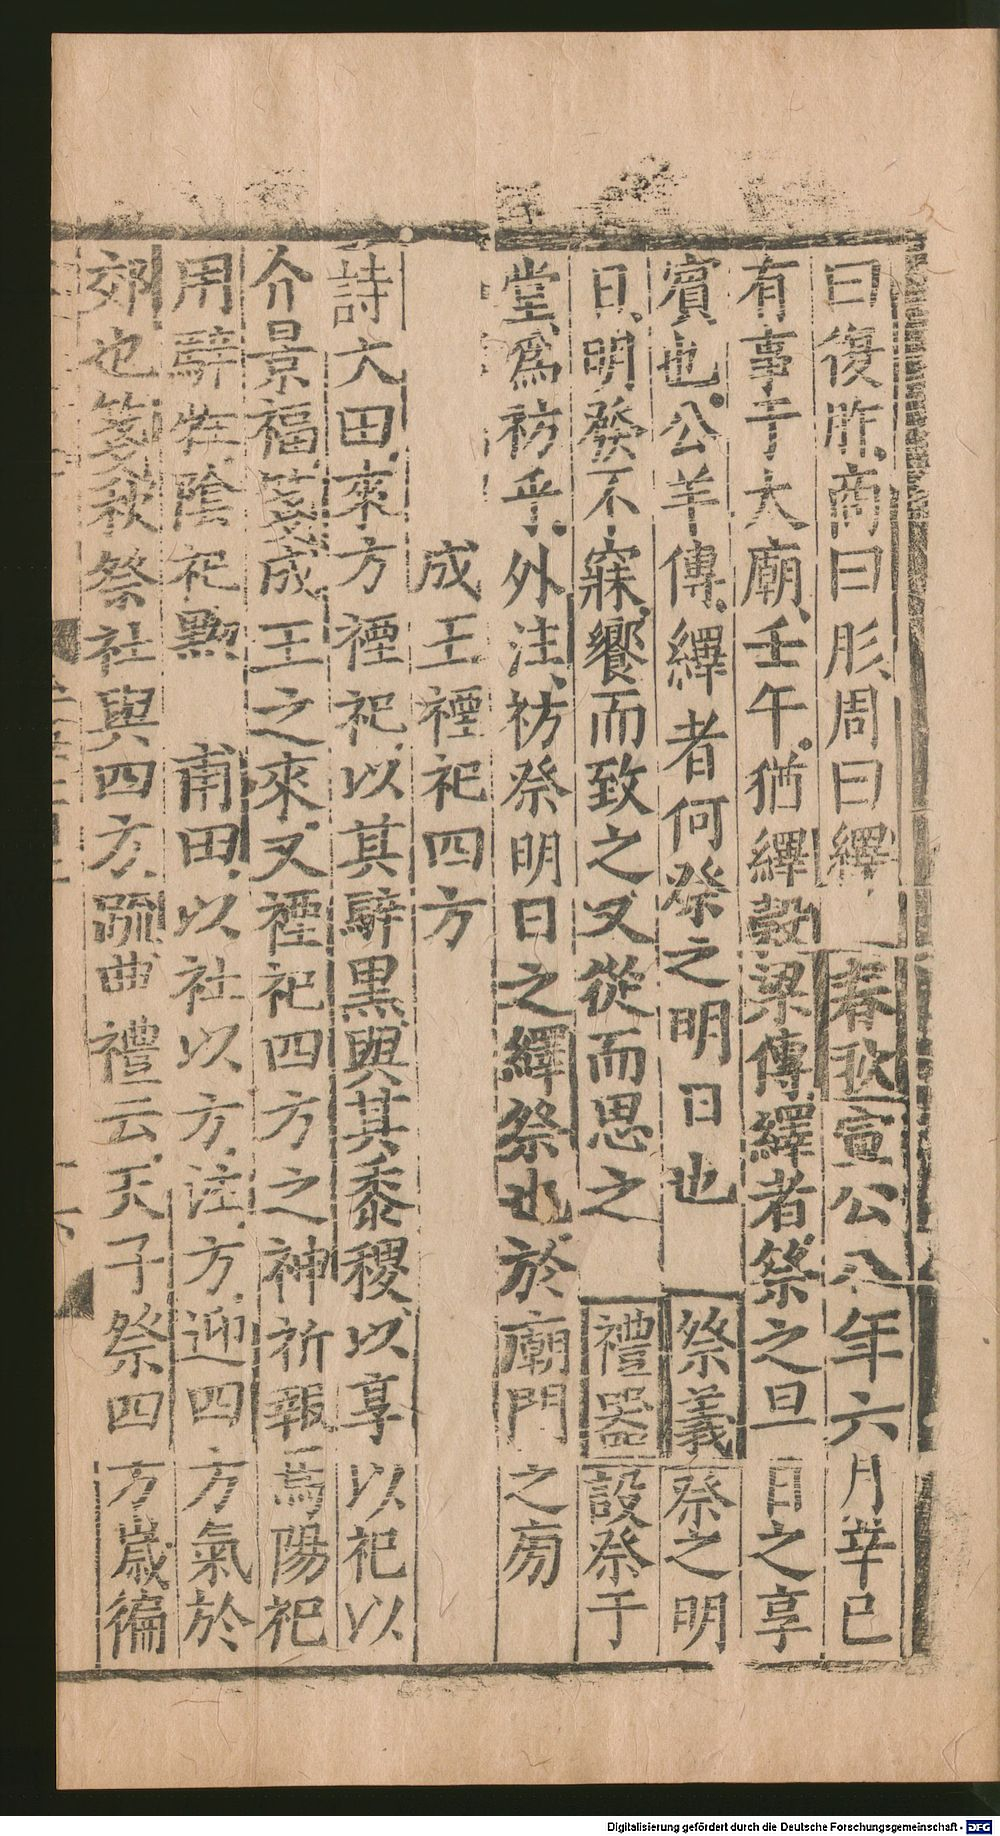 曰復胙商曰肜周曰繹 春秋宣公八年六月辛巳
有事于大廟壬午猶繹穀梁傳繹者祭之旦日之享
賓也公羊傳繹者何祭之明日也 祭義祭之明
日明發不寐饗而致之又從而思之 禮器設祭于
堂爲祊乎外注祊祭明日之繹祭也於廟門之旁
成王禋祀四方
詩大田來方禋祀以其騂黑與其黍稷以享以祀以
介景福箋成王之來又禋祀四方之神祈報焉陽祀
用騂牲陰祀黝 甫田以社以方注方迎四方氣於
郊也箋秋祭社與四方疏曲禮云天子祭四方歲徧
Digitalisierung gefördert durch die Deutsche Forschungsgemeinschaft - DFG